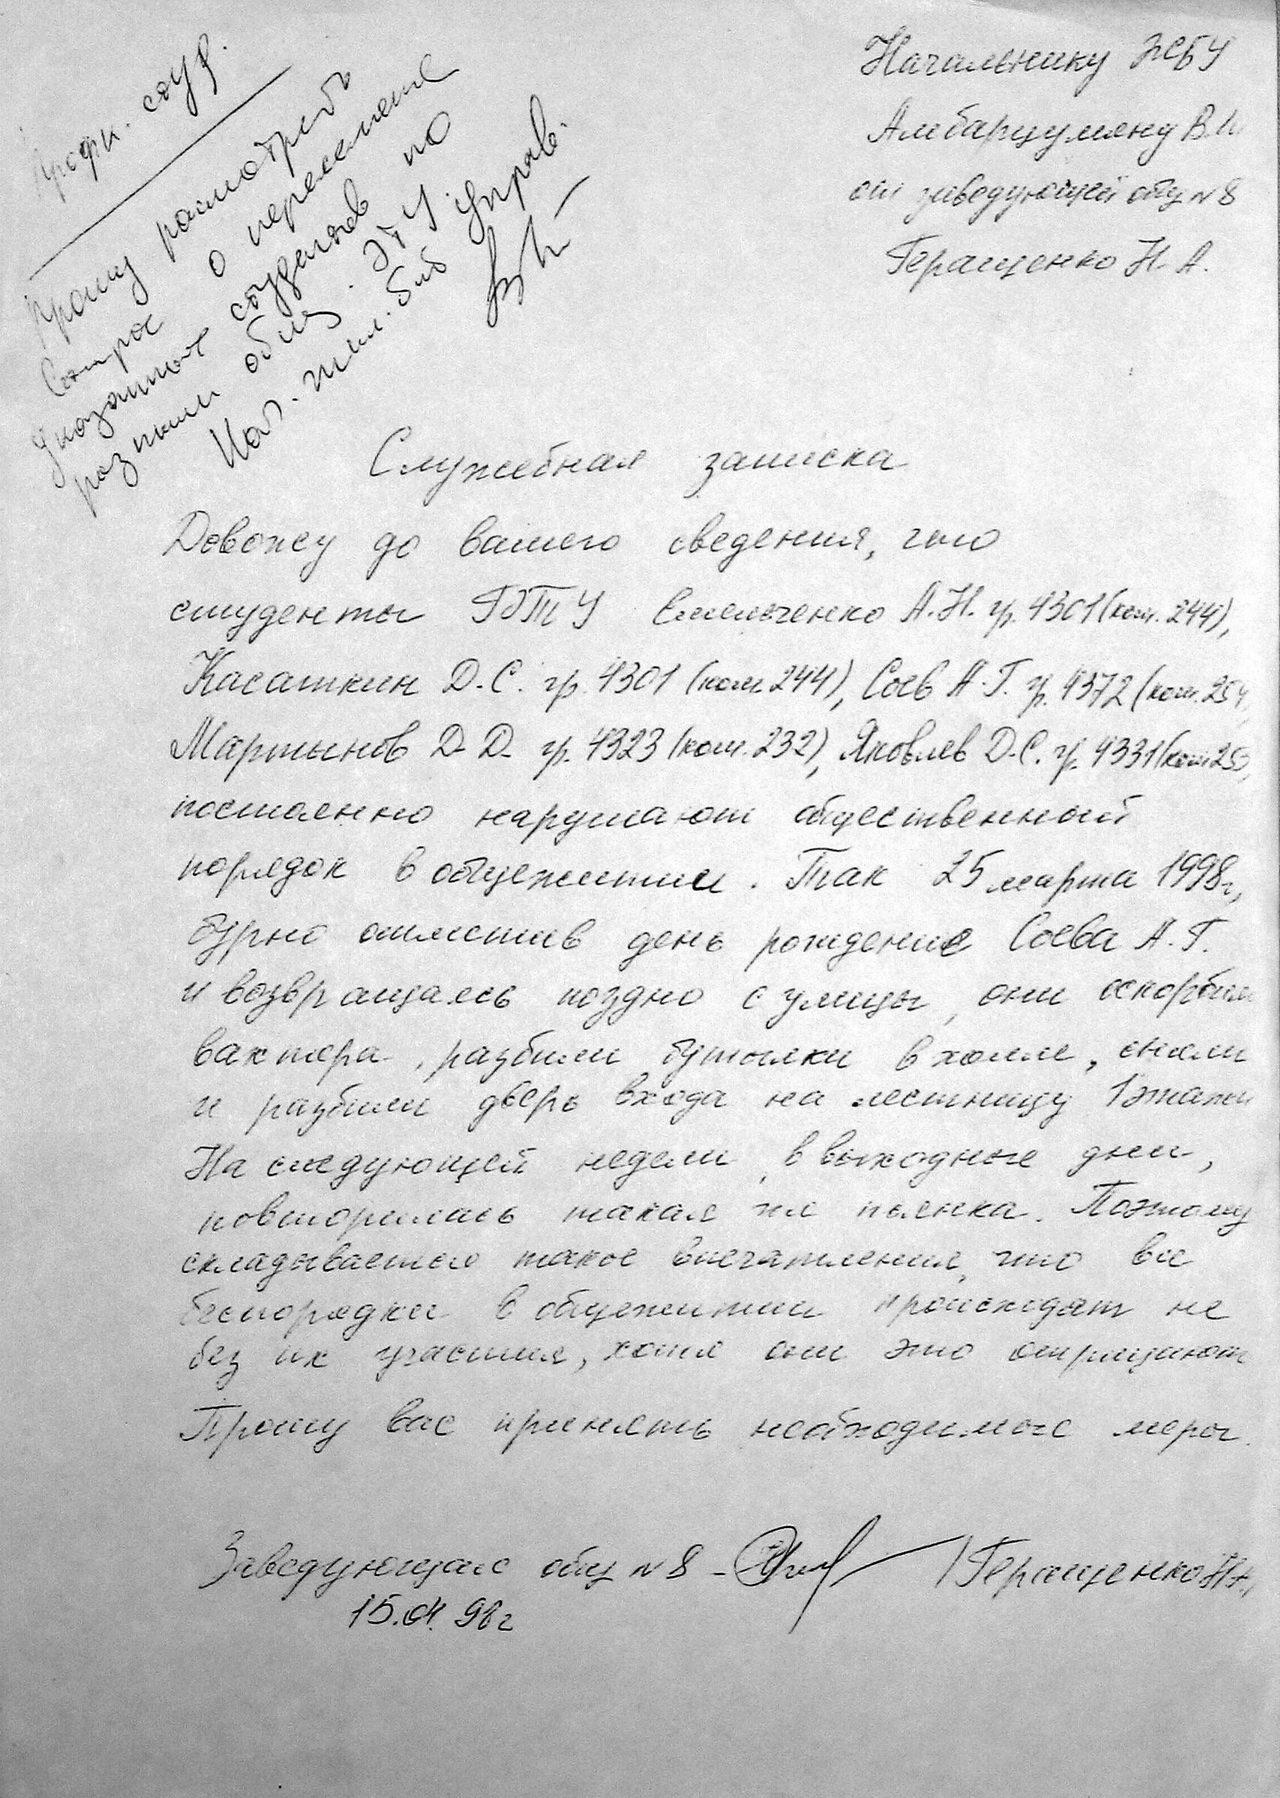 Профк. студ.
Прошу рассмотреть
вопрос о переселение
указанных студентов по
разным общ. ЭТУ
Нач. жил. быт управ.
Начальнику ЖБУ
Амбарцумяну В.И.
от заведующей общ №8
Геращенко Н. А.
Служебная записка
Довожу до вашего сведения, что
студенты ГЭТУ Емельченко А.Н. гр. 4301 (ком. 244),
Касаткин Д.С. гр. 4301 (ком. 244), Соев А.Г. гр. 4372 (ком. 254,
Мартынов Д.Д. гр. 4323 (ком. 232), Яковлев Д.С. гр. 4331 (ком 250,
постоянно нарушают общественный
порядок в общежитии. Так 25 марта 1998г,
бурно отметив день рождение Соева А.Г.
и возвращаясь поздно с улицы, они оскорбили
вахтера, разбили бутылки в холле, сняли
и разбили дверь входа на лестницу 1 этажа
На следующей недели, в выходные дни,
повторилась такая же пьянка. Поэтому
складывается такое впечатления, что все
беспорядки в общежитии происходят не
без их участия, хотя они это отрицают
Прошу вас принять необходимые меры.
Заведующая общ №8 - /Геращенко Н.А/
15.04.98г